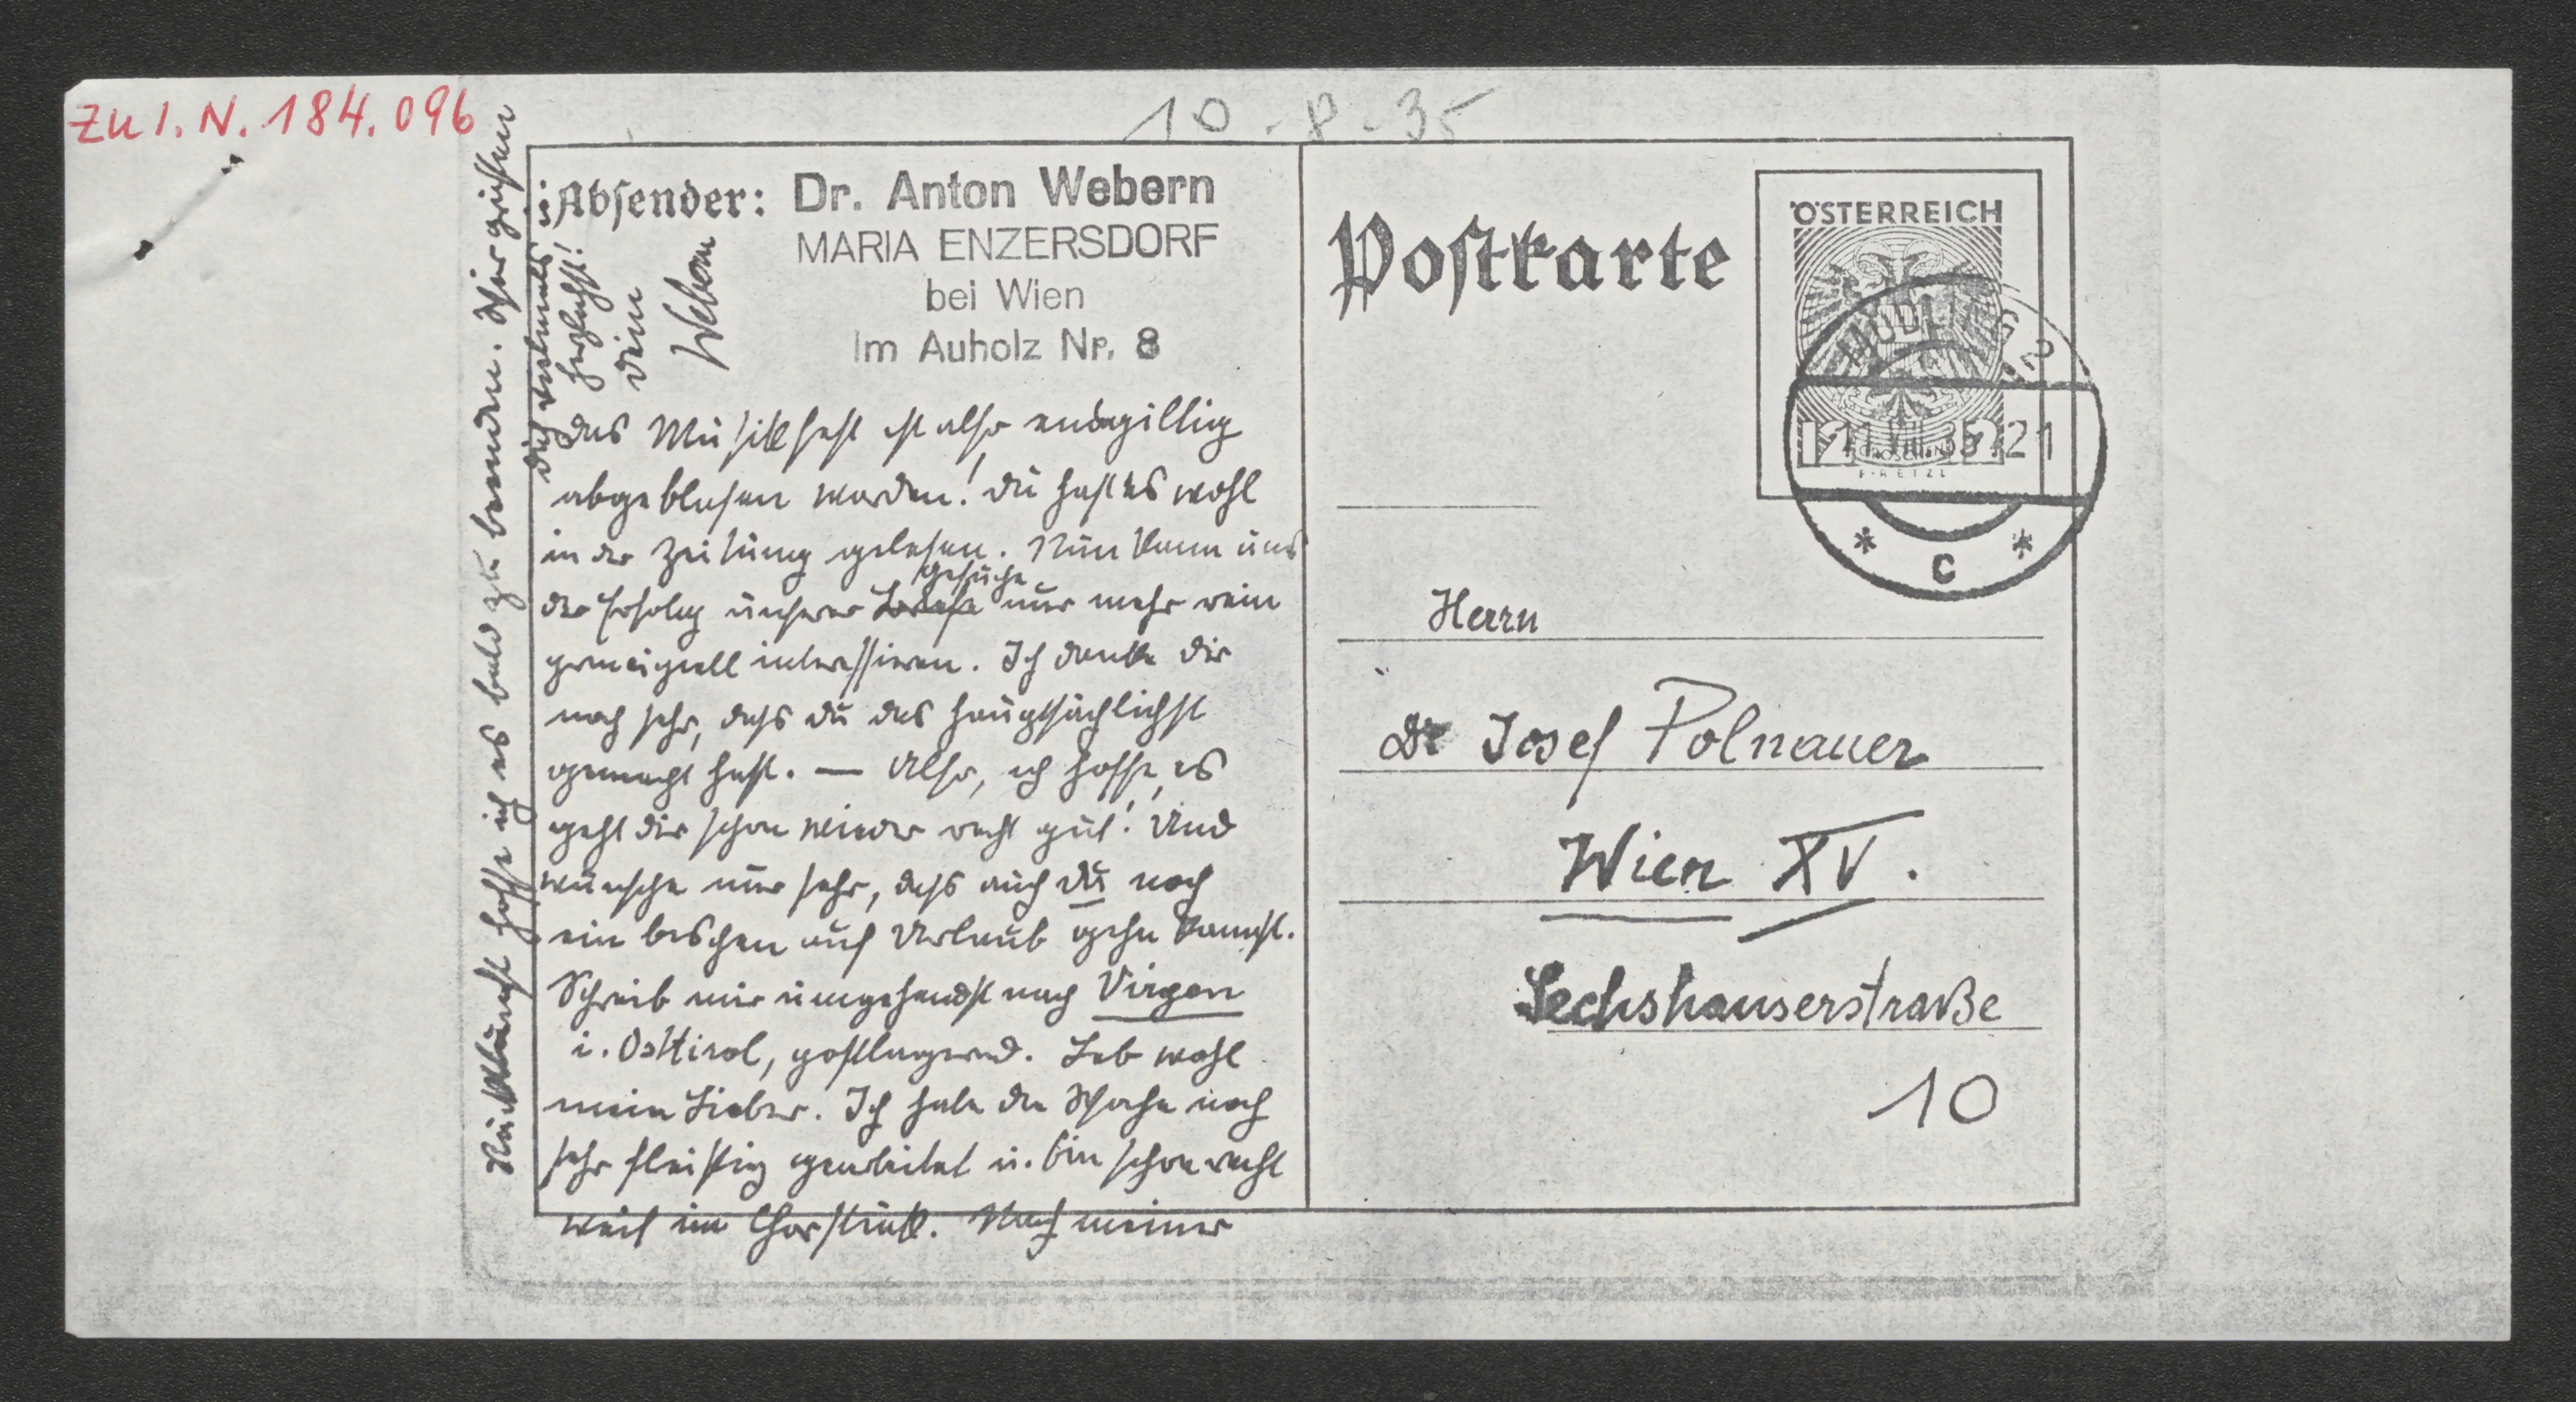 ZU I. N. 184.096
10 - 8 - 35
Absender: Dr. Anton Webern
MARIA ENZERSDORF
bei Wien
Im Auholz Nr. 8
das Musikfest ist also endgiltig
abgeblasen worden! Du hast es wohl
in der Zeitung gelesen. Nun kann uns
Gesuche
der Erfolg unserer nur mehr rein
principiell interessieren. Ich danke Dir
noch sehr, dass Du das hauptsächlichst
gemacht hast. — Also, ich hoffe, es
geht Dir schon wieder recht gut! Und
wünsche nur sehr, dass auch Du noch
ein bischen auf Urlaub gehn kannst.
Schreib mir umgehendst nach Virgen
i. Osttirol, postlagernd. Leb wohl
mein Lieber. Ich habe die Woche noch
sehr fleißig gearbeitet u. bin schon recht
weit im Chorstück. Nach meiner
Rückkunft hoffe ich es bald zu beenden. Wir grüßen
Dich vielmals u.
herzlichst!
Dein
Webern
Postkarte
ÖSTERREICH
GROSCHEN
12.VIII.35 21
* C *
Herrn
Dr Josef Polnauer
Wien XV.
Sechshauserstraße
10